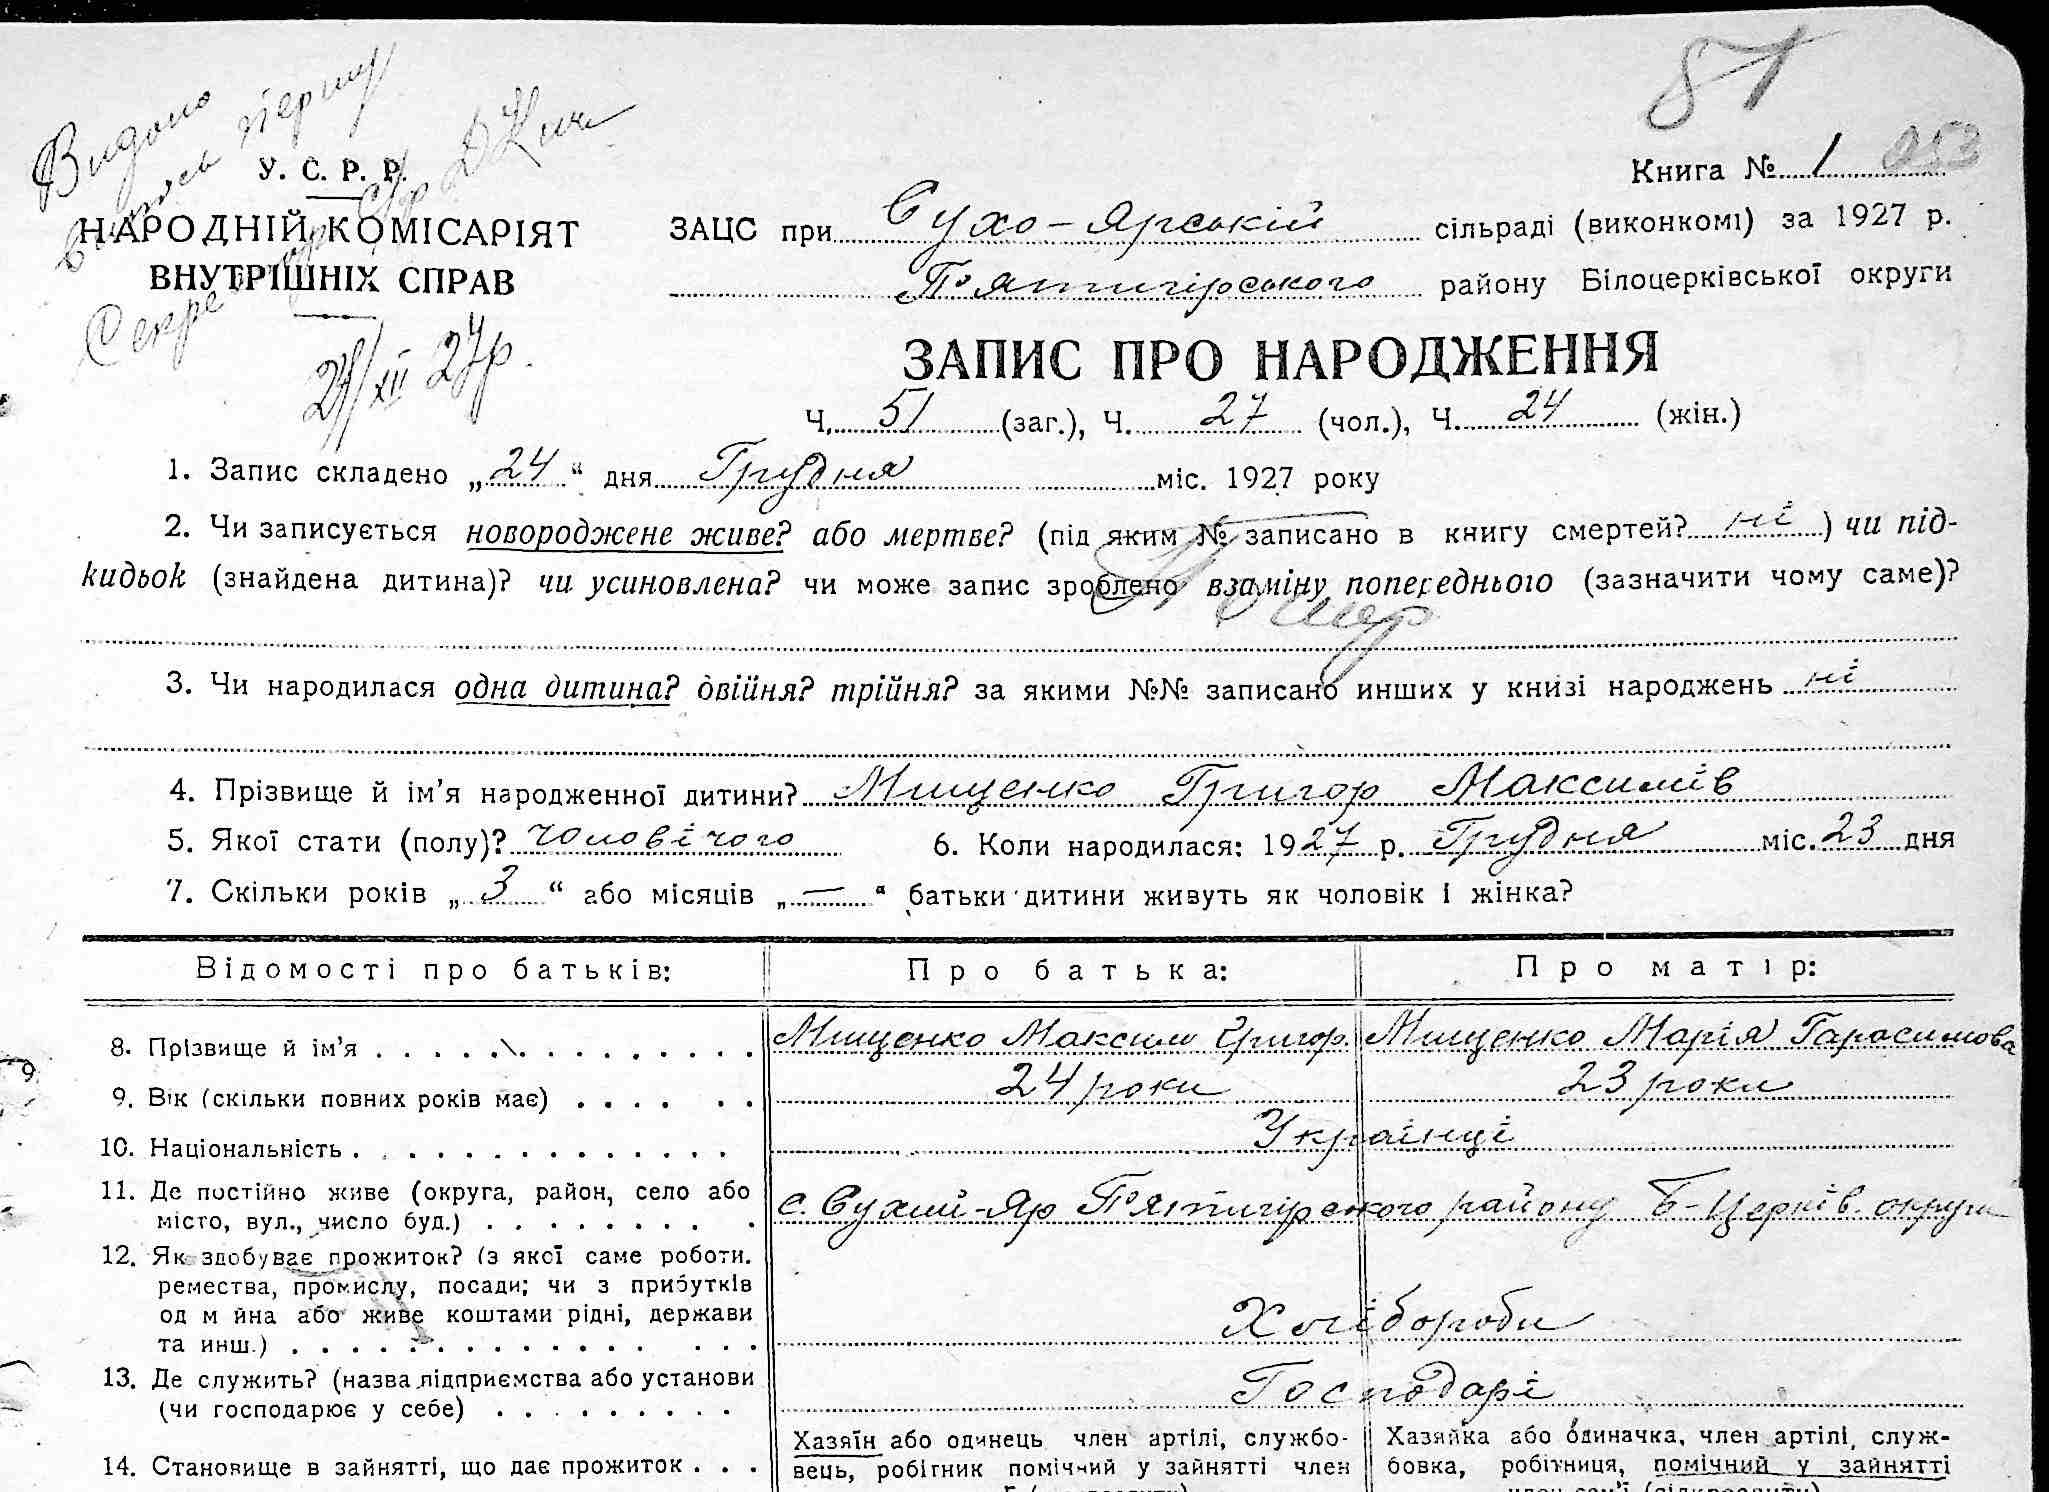 81
Видано
виписъ першу
У. С. Р. Р.
Книга № 1 053
НАРОДНІЙ КОМІСАРІЯТ
ВНУТРІШНІХ СПРАВ
24/XII 27р.
ЗАЦС при Сухо-Ярській сільраді (виконкомі) за 1927 р.
П'ятигірського району Білоцерківської округи
ЗАПИС ПРО НАРОДЖЕННЯ
Ч. 51 (заг.), Ч. 27 (чол.), Ч. 24 (жін.)
1. Запис складено „24“ дня Грудня міс. 1927 року
2. Чи записується новороджене живе? або мертве? (під яким № записано в книгу смертей? ні ) чи під-
кидьок (знайдена дитина)? чи усиновлена? чи може запис зроблено взаміну попереднього (зазначити чому саме)?
3. Чи народилася одна дитина? двійня? трійня? за якими №№ записано инших у книзі народжень ні
4. Прізвище й ім’я народженної дитини? Мищенко Григор Максимів
5. Якої стати (полу)? чоловічого 6. Коли народилася: 1927 р. Грудня міс. 23 дня
7. Скільки років „ 3 “ або місяців „ — “ батьки дитини живуть як чоловік і жінка?
Відомості про батьків: Про батька: Про матір:
8. Прізвище й ім’я Мищенко Максим Григор. Мищенко Марія Гарасимова
9. Вік (скільки повних років має) 24 роки 23 роки
10. Національність Українці
11. Де постійно живе (округа, район, село або
місто, вул., число буд.) с. Сухий-Яр П'ятигірського району Б-Церків. округи
12. Як здобуває прожиток? (з якої саме роботи.
ремества, промислу, посади; чи з прибутків
од м йна або живе коштами рідні, держави
та инш.) Хлібороби
13. Де служить? (назва підприємства або установи
(чи господарює у себе) Господарі
14. Становище в зайнятті, що дає прожиток
Хазяїн або одинець член артілі, службо-
вець, робітник помічний у зайнятті член
Хазяйка або одиначка, член артілі, служ-
бовка, робітниця, помічний у зайнятті
член сем’ї (підкреслити)